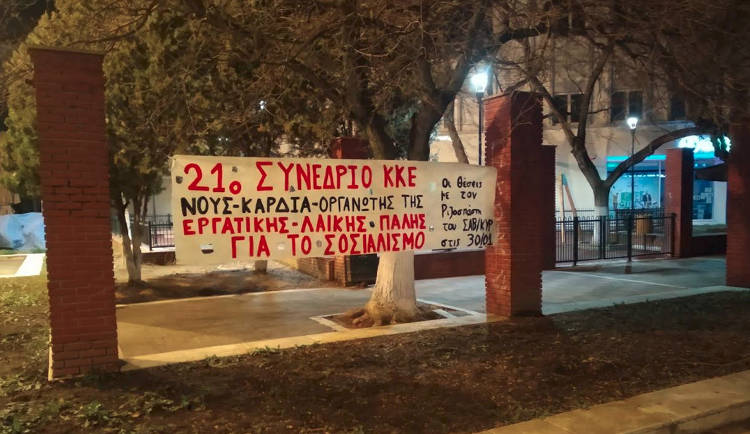 21ο ΣΥΝΕΔΡΙΟ ΚΚΕ
ΝΟΥΣ-ΚΑΡΔΙΑ-ΟΡΓΑΝΩΤΗΣ ΤΗΣ
ΕΡΓΑΤΙΚΗΣ-ΛΑΙΚΗΣ ΠΑΛΗΣ
ΓΙΑ ΤΟ ΣΟΣΙΑΛΙΣΜΟ
Οι Θέσεις
με τον
Ριζοσπάστη
του ΣΑΒ/ΚΥΡ
στις 30/01